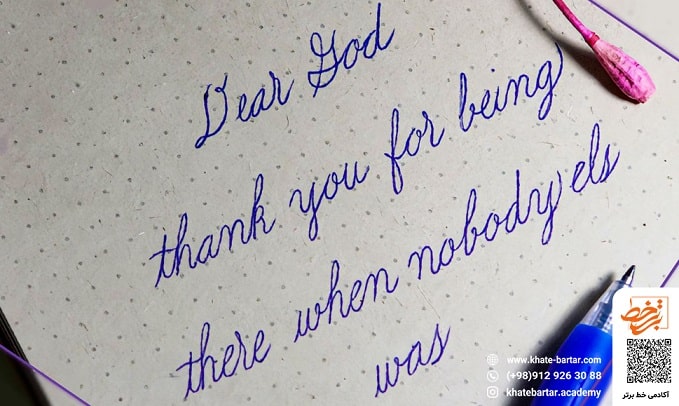 Dear God
thank you for being
there when nobody els
was
www.khate-bartar.com
(+98)912 926 30 88
khatebartar.academy
خط برتر
آکادمی خط برتر